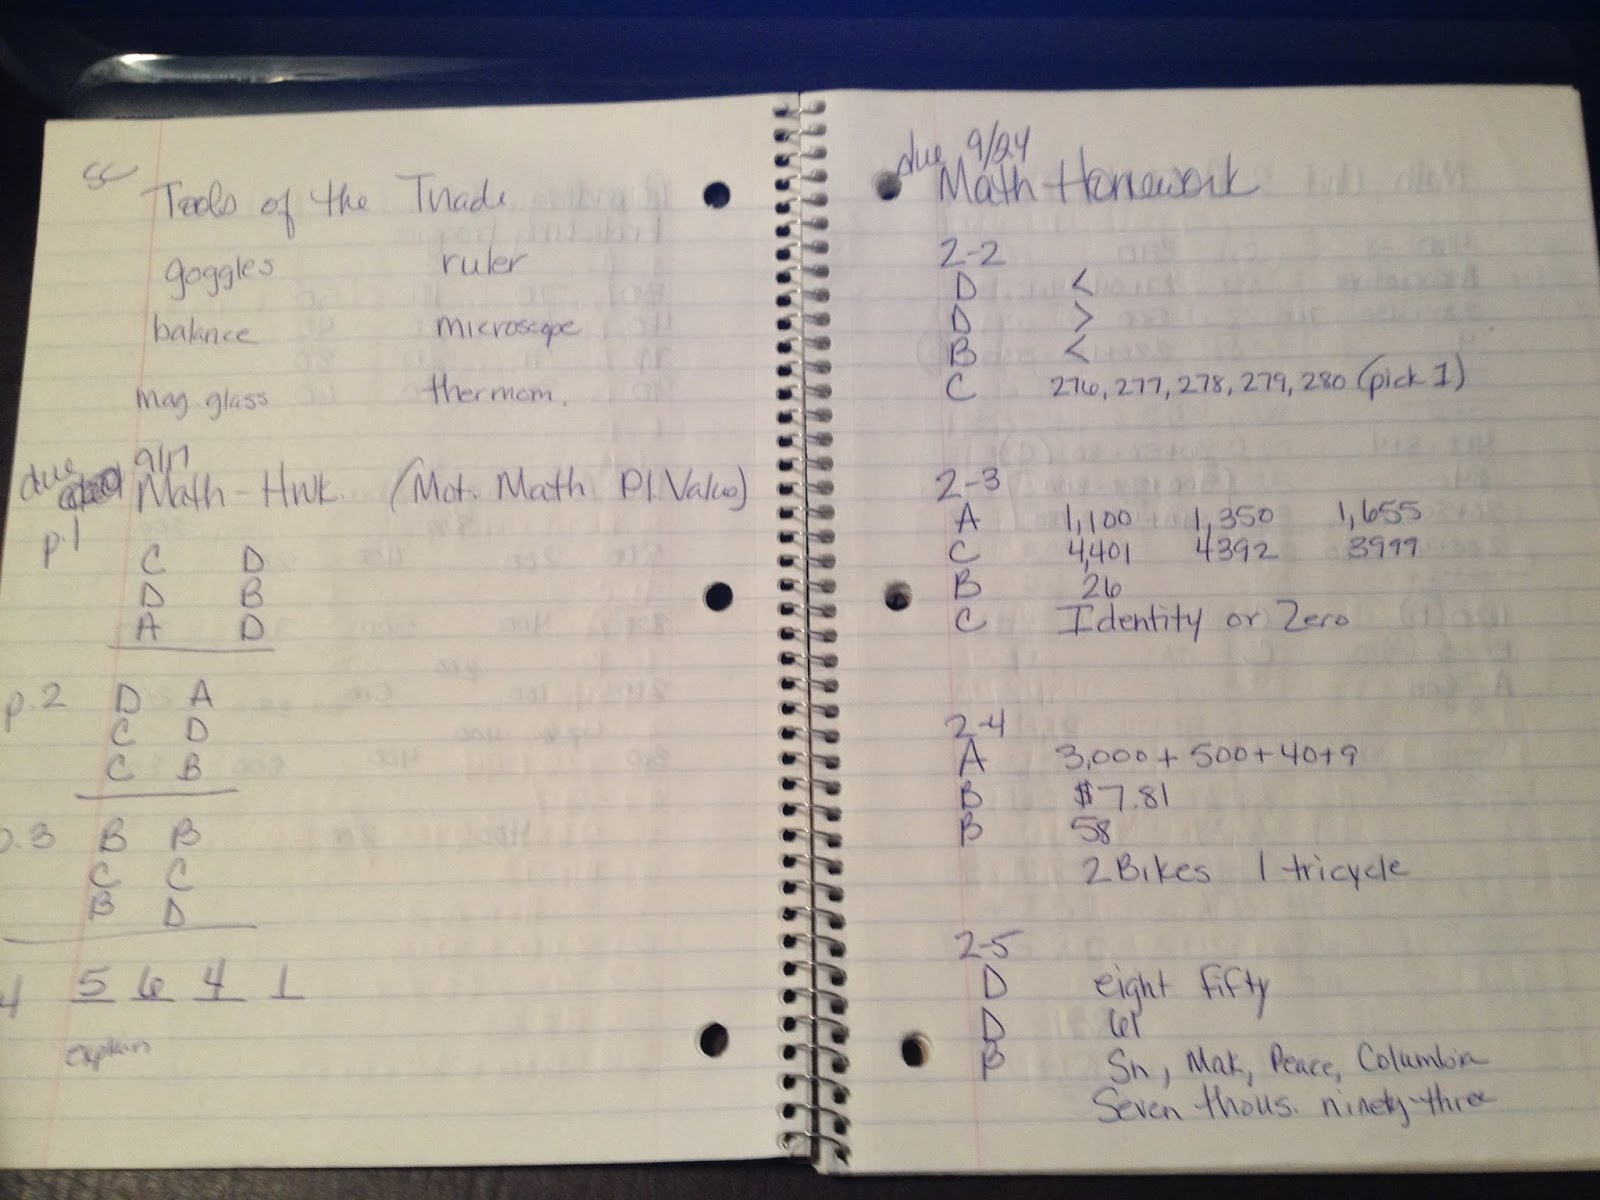 SC
Tools of the Trade
goggles ruler
balance microscope
mag. glass thermom.
due 9/17
Math-Hwk. (Mot. Math Pl. Value)
p.1
C D
D B
A D
p.2 D A
C D
C B
p.3 B B
C C
B D
4 5 6 4 1
explain
due 9/24
Math Homework
2-2
D <
D >
B <
C 276, 277, 278, 279, 280 (pick 1)
2-3
A 1,100 1,350 1,655
C 4,401 4392 3999
B 26
C Identity or Zero
2-4
A 3,000 + 500 + 40 + 9
B $7.81
B 58
2 Bikes 1 tricycle
2-5
D eight fifty
D 61
B Sn, Mak, Peace, Columbia
Seven thous. ninety-three